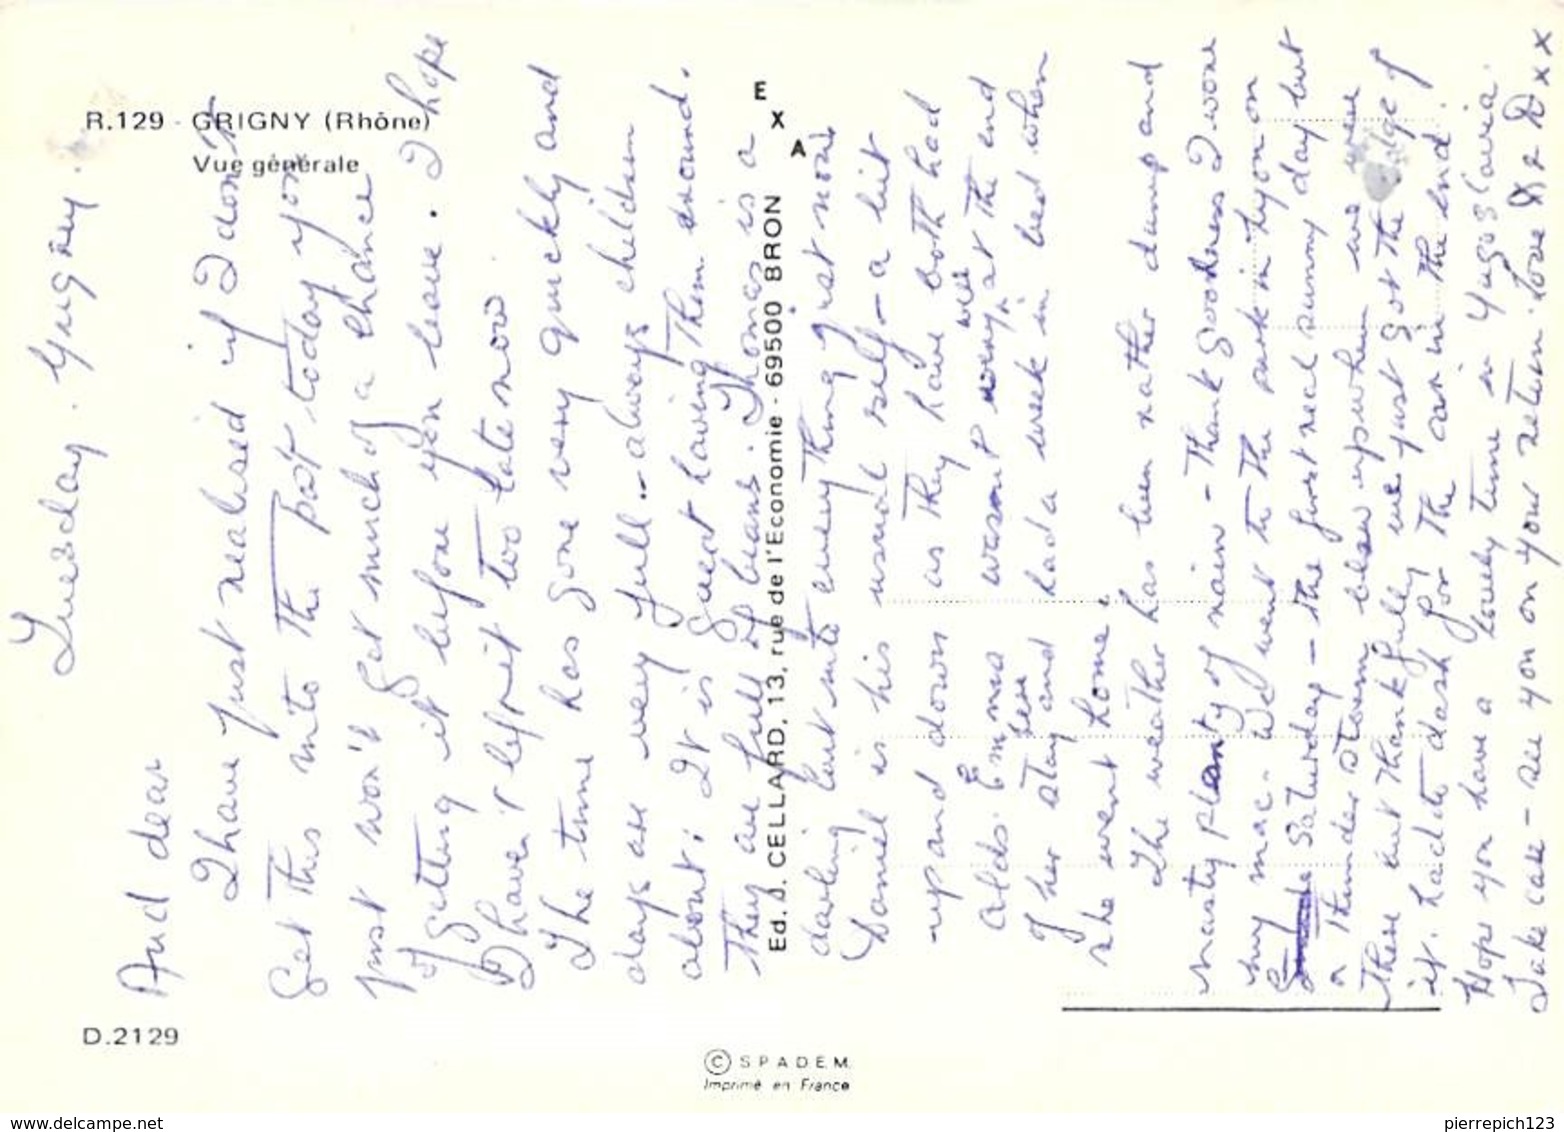 R.129 - GRIGNY (Rhône)
Vue générale
Tuesday. Grigny.
Aud dear
I have just realised if I don't
get this into the post today you
just won't get much of a chance
of getting it before you leave. I hope
I haven't left it too late now
The time has gone very quickly and
days are very full - always children
about. It is great having them around.
They are full of beans. Thomas is a
darling but into everything just now
Daniel is his usual self - a bit
up and down as they have both had
colds. Emma wasn't very well at the end
of her stay and had a week in bed when
she went home.
The weather has been rather damp and
nasty plenty of rain - thank goodness I wore
my mac. We went to the park in Lyon on
Saturday - the first real sunny day but
a thunder storm blew up when we were
there but thankfully we just got the edge of
it. Had to dash for the car in the end.
Hope you have a lovely time in Yugoslavia.
Take care - see you on your return. Love
xxx
E
X
A
Ed. J. CELLARD, 13, rue de l'Economie - 69500 BRON
D.2129
© S P A D E M.
Imprimé en France
www.delcampe.net
pierrepich123